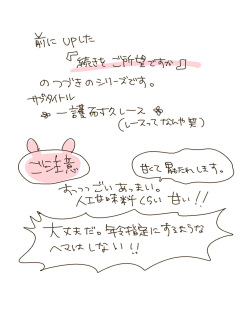 前に upした
『続きをご所望ですか』
のつづきのシリーズです。
サブタイトル
一護石すくレース
(レースってなんや 笑)
ご注意
甘くて胃もたれします。
おっっっごいあっまい。
人工甘味料くらい 甘い!!
大丈夫だ。年令指定にするような
ヘマはしない!!